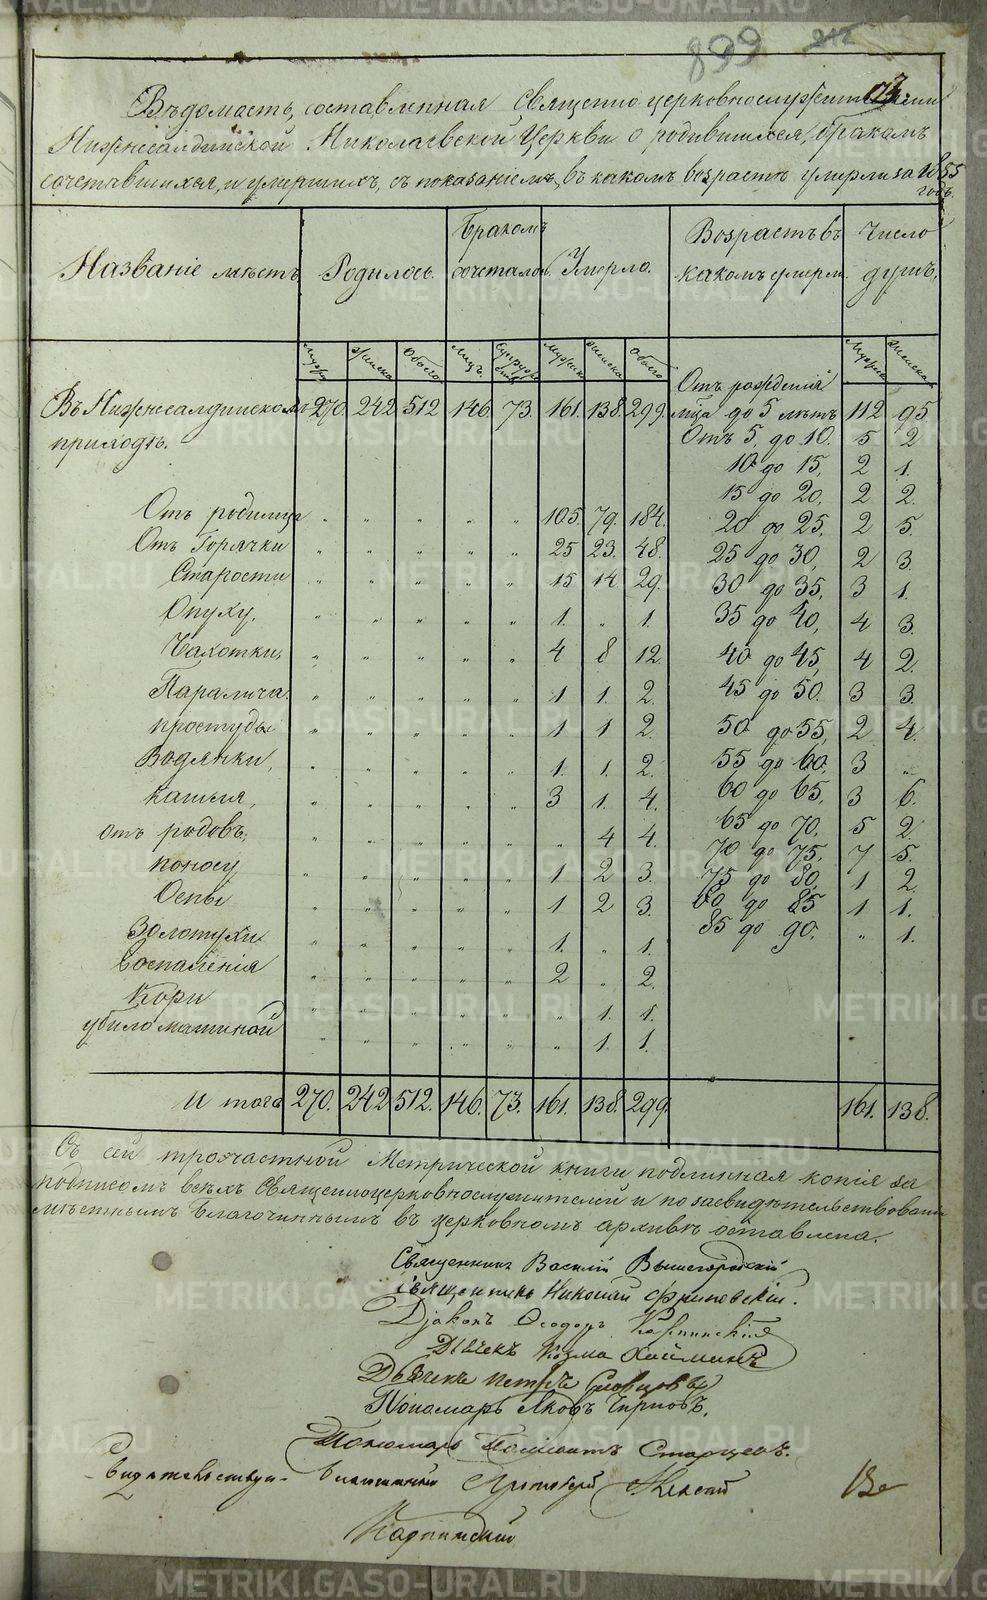 899 212
Вѣдомость, составленная Священно церковнослужителями
Нижнесалдинской Николаевской Церкви о родившихся, бракомъ
сочетавшихся, и умершихъ, съ показаніемъ, въ какомъ возрастѣ умерли за 1855
годъ.
Названіе мѣстъ Родилось Бракомъ сочеталось Умерло. Возрастъ въ какомъ умерли Число душъ.
Мужска Женска Обоего Лицъ. Мужска Женска Обоего Мужска Женска
Въ Нижнесалдинскомъ 270. 242 512 146. 73. 161. 138. 299. Отъ рожденія до 5 лѣтъ 112 95
приходѣ. Отъ 5, до 10. 5 2
10 до 15, 2 1.
15 до 20, 2 2.
Отъ родимца " " " " " 105. 79. 184. 20 до 25, 2 5.
Отъ Горячки " " " " " 25 23. 48. 25 до 30, 2 3.
Старости " " " " " 15 14. 29. 30 до 35, 3 1.
Опуху, " " " " " 1. " 1. 35 до 40, 4 3.
Чахотки, " " " " " 4 8 12. 40 до 45, 4 2.
Паралича. " " " " " 1 1. 2. 45 до 50. 3 3.
простуды " " " " " 1 1 2. 50 до 55, 2 4.
Водянки, " " " " " 1. 1. 2. 55 до 60, 3 "
кашля, " " " " " 3 1. 4. 60 до 65, 3 6.
отъ родовъ, " " " " " " 4 4. 65 до 70, 5 2.
поносу " " " " " 1 2 3. 70 до 75, 7 5.
Оспы " " " " " 1 2 3. 75 до 80, 1 2.
80 до 85 1 1.
Золотухи " " " " " 1. " 1. 85 до 90. " 1.
Воспаленія " " " " " 2 " 2.
Кори " " " " " " 1. 1.
убило машиной " " " " " " 1. 1.
Итого 270. 242 512. 146. 73. 161. 138. 299. 161. 138.
Съ сей трехчастной Метрической книги подлинная копія за
подписомъ всѣхъ Священноцерковнослужителей и по засвидѣтельствованіи
мѣстнымъ Благочиннымъ въ церковномъ архивѣ оставлена.
Священникъ Василій Вышегородскій
Священникъ Николай
Діаконъ Ѳеодоръ Карпинскій
Дьячекъ Козма
Дьячекъ Петръ Словцовъ
Пономарь Яковъ Чирковъ.
Пономарь Старцевъ.
Благочинный Протоіерей Алексий
Карпинскій
METRIKI.GASO-URAL.RU